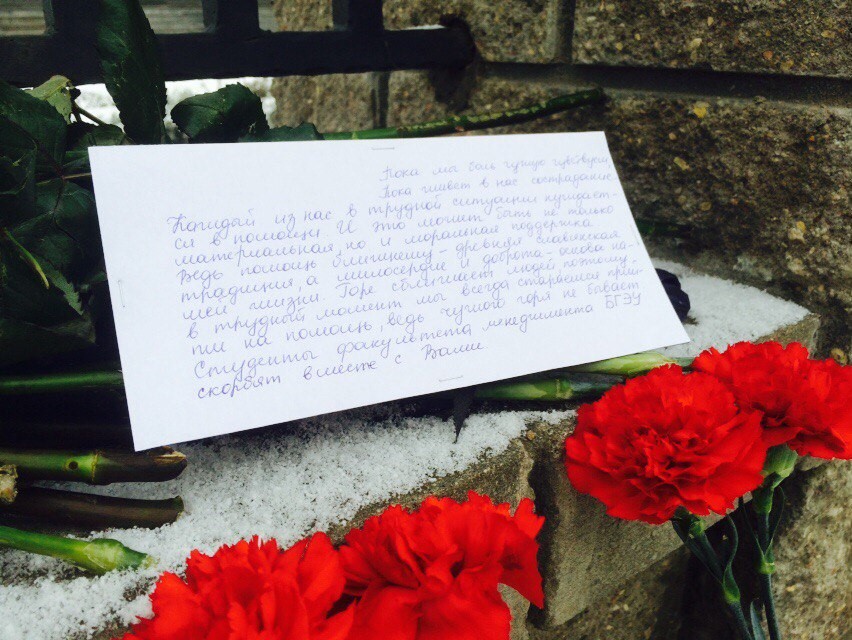 Пока мы боль чужую чувствуем,
Пока живет в нас сострадание.
Каждый из нас в трудной ситуации нуждает-
ся в помощи. И это может быть не только
материальная, но и моральная поддержка.
Ведь помощь ближнему - древняя славянская
традиция, а милосердие и доброта - основа на-
шей жизни. Горе сближает людей, поэтому
в трудный момент мы всегда стараемся прий-
ти на помощь, ведь чужого горя не бывает
Студенты факультета менеджмента БГЭУ
скорбят вместе с Вами